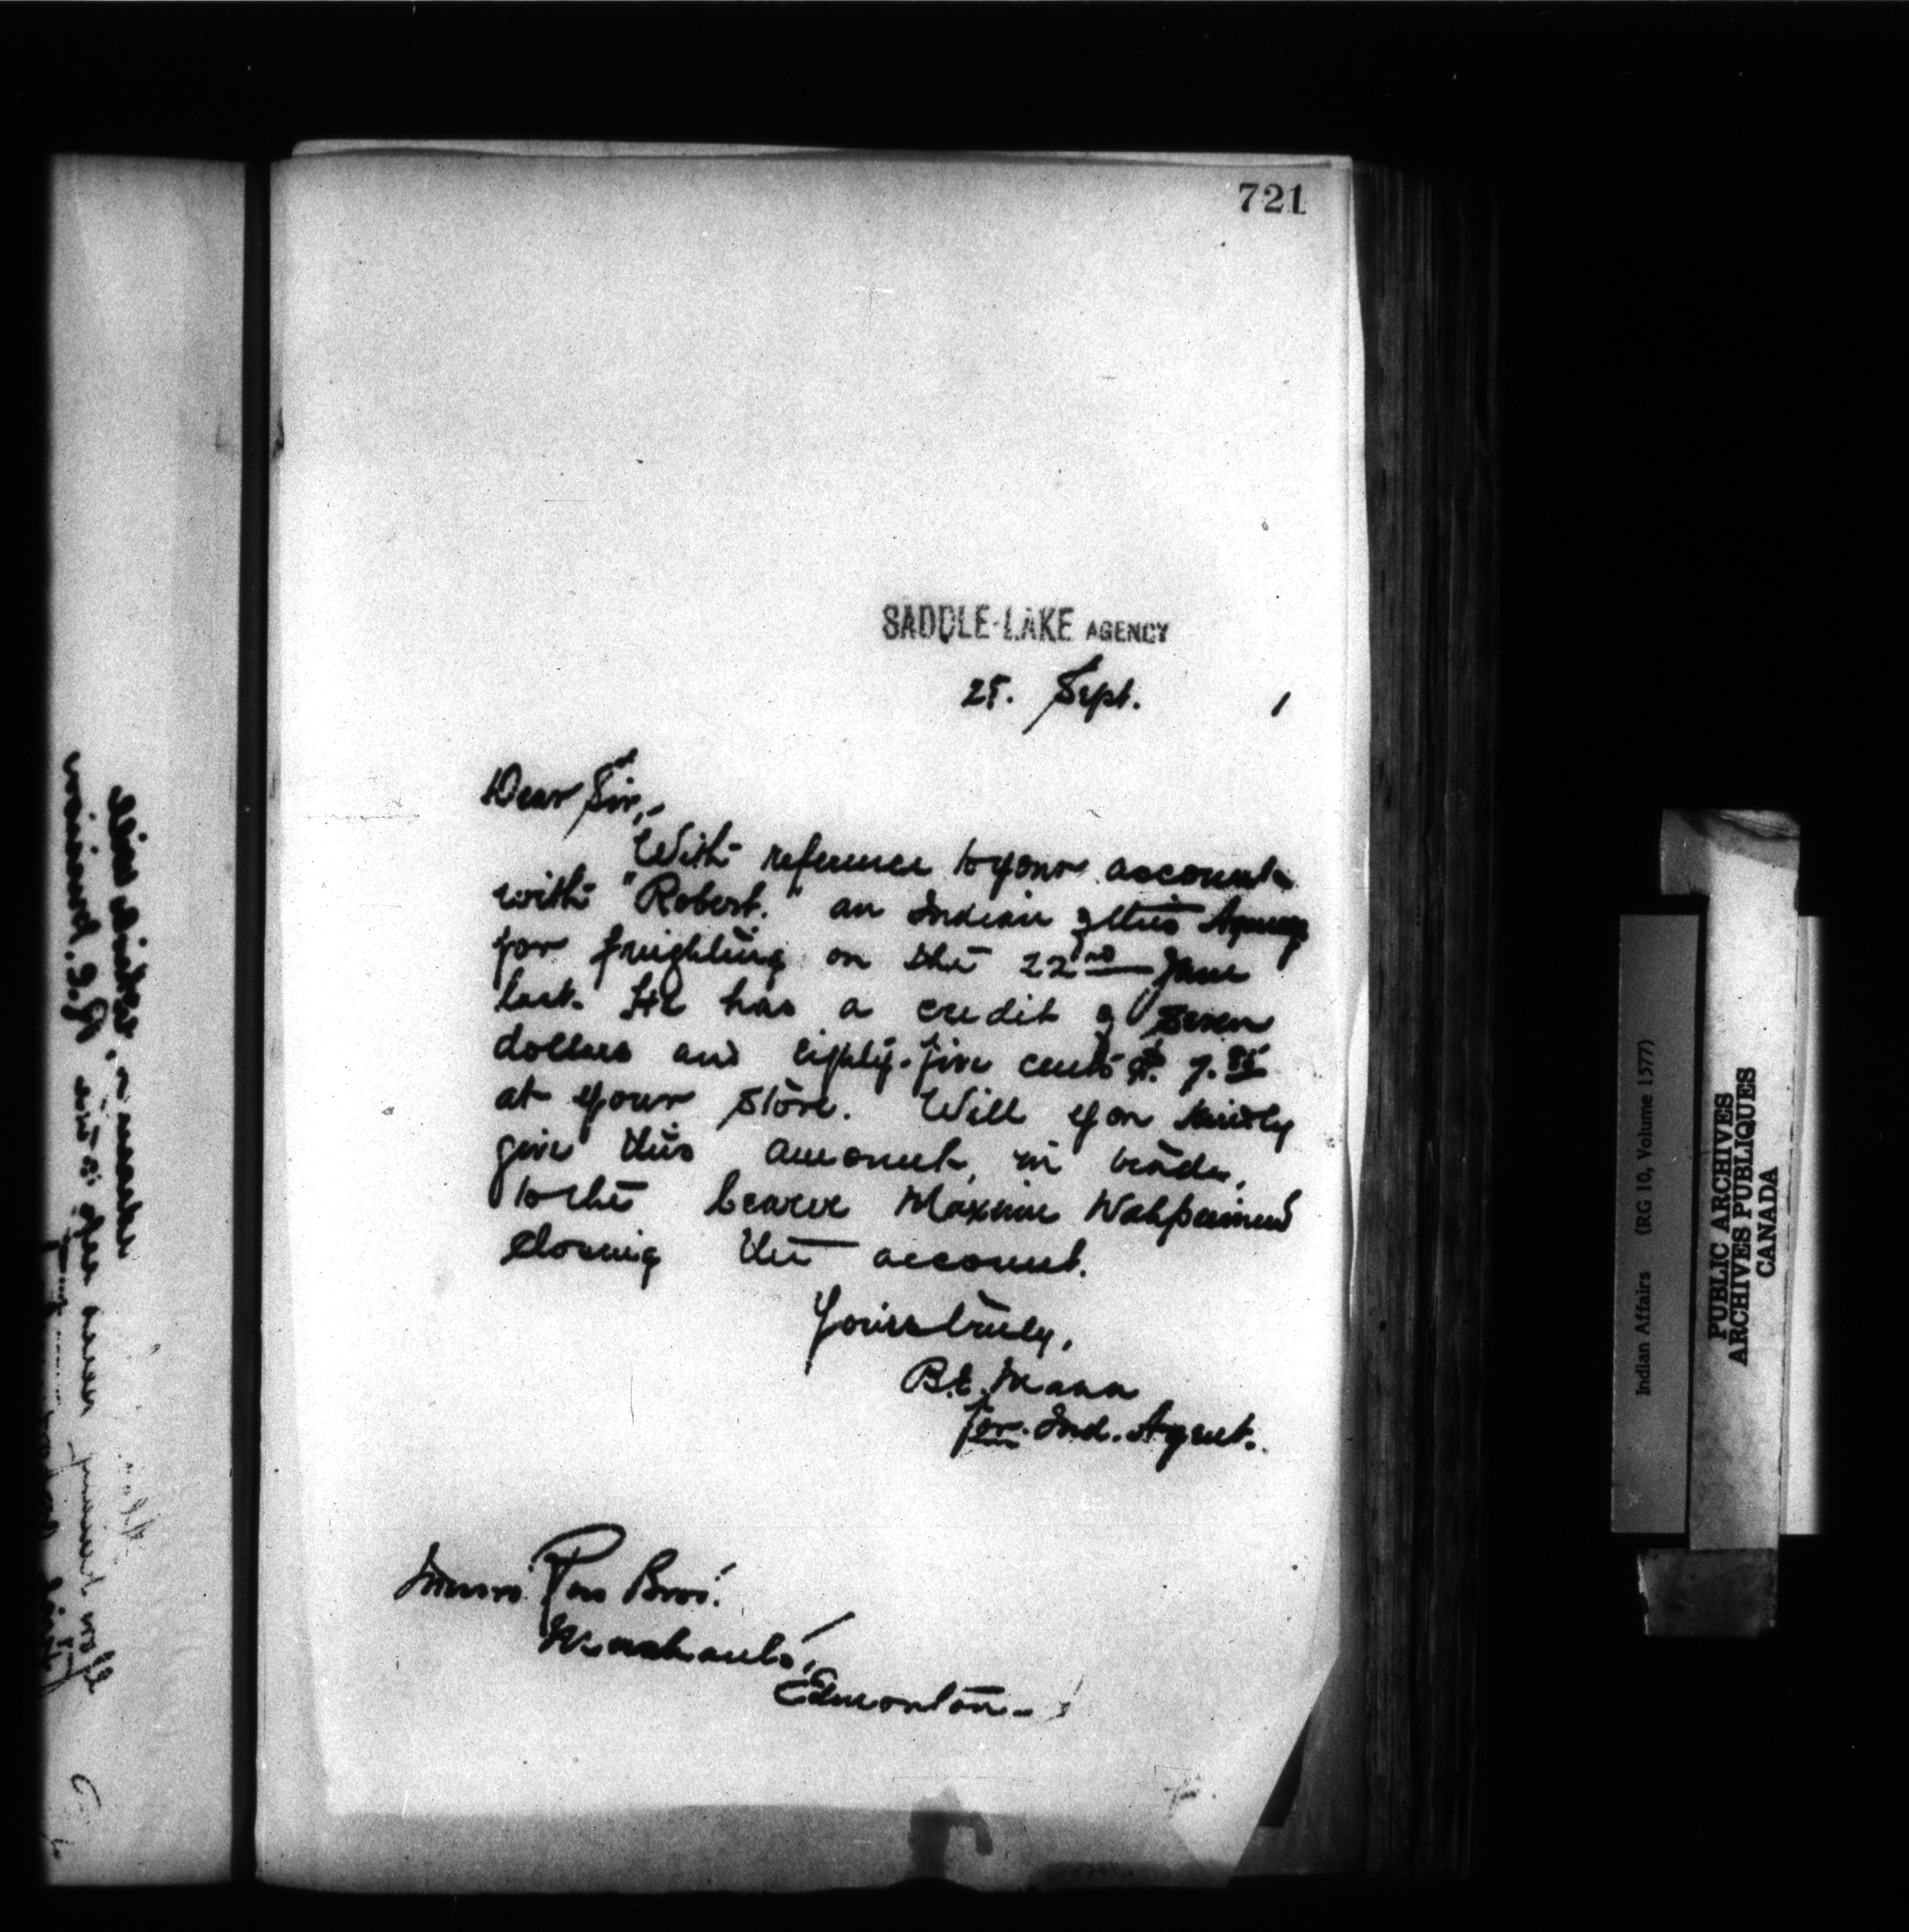 721
SADDLE-LAKE AGENCY
25. Sept. 1
Dear Sir,
With reference to your account
with "Robert." an Indian of this Agency
for freighting on the 22nd June
last. He has a credit of seven
dollars and eighty-five cents $7.85
at your store. Will you kindly
give this amount, in trade,
to the bearer Maxime
closing the account.
Yours truly,
B.E. Mann
for Ind. Agent.
Bros.
Merchants,
Edmonton
Indian Affairs (RG 10, Volume 1577)
PUBLIC ARCHIVES
ARCHIVES PUBLIQUES
CANADA